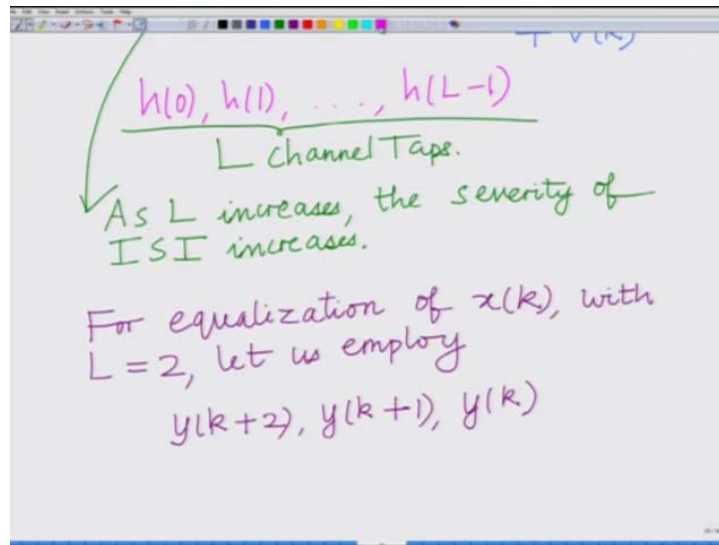 + v(k)
h(0), h(1), ..., h(L-1)
L Channel Taps.
As L increases, the severity of
ISI increases.
For equalization of x(k), with
L = 2, let us employ
y(k+2), y(k+1), y(k)